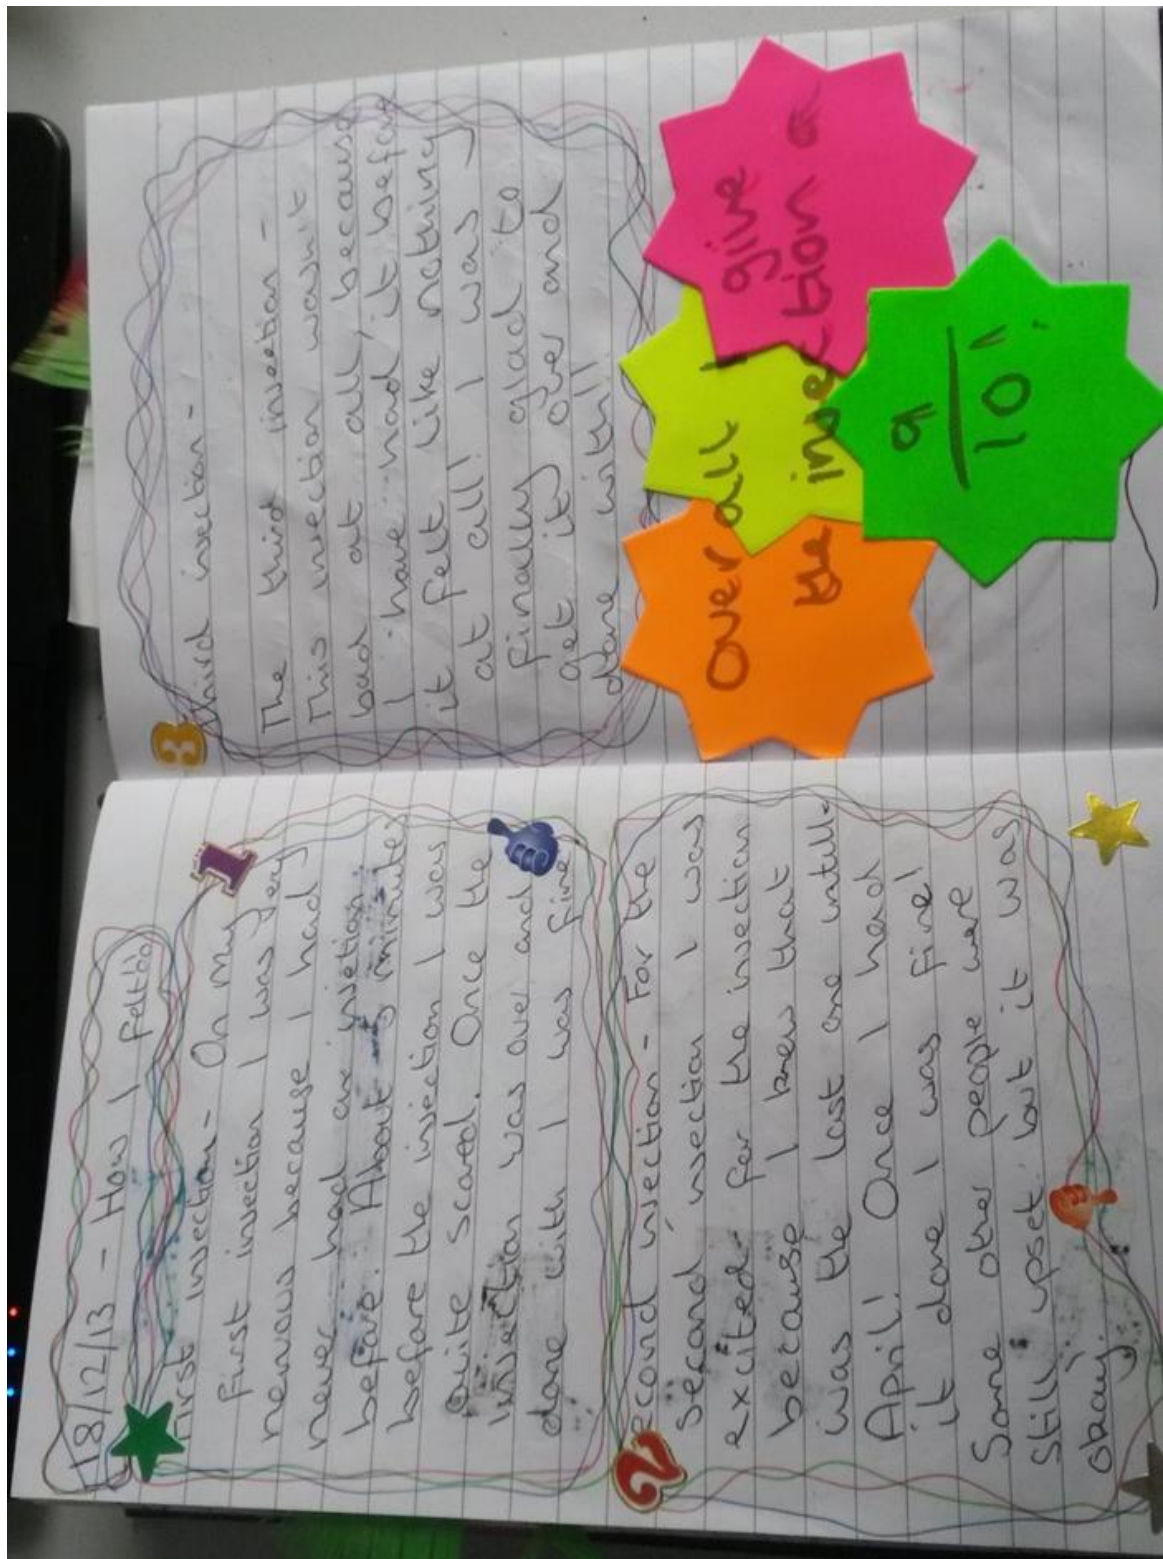 18/12/13 - How I felt:
1
First Injection - On my
first injection I was very
nervous because I had
never had an injetion
before. About 5 minutes
before the injection I was
quite scared. Once the
injection was over and
done with I was fine
2
Second injection - For the
second injection I was
excited for the injection
because I knew that
was the last one intill
April! Once I had
it done I was fine!
Some other people were
still upset, but it was
okay.
3
Third injection -
The third injection -
This injection wasn't
bad at all, because
I have had it before
it felt like nothing
at all! I was
finally glad to
get it over and
done with!!
Over all I give
the injection a
9
10!